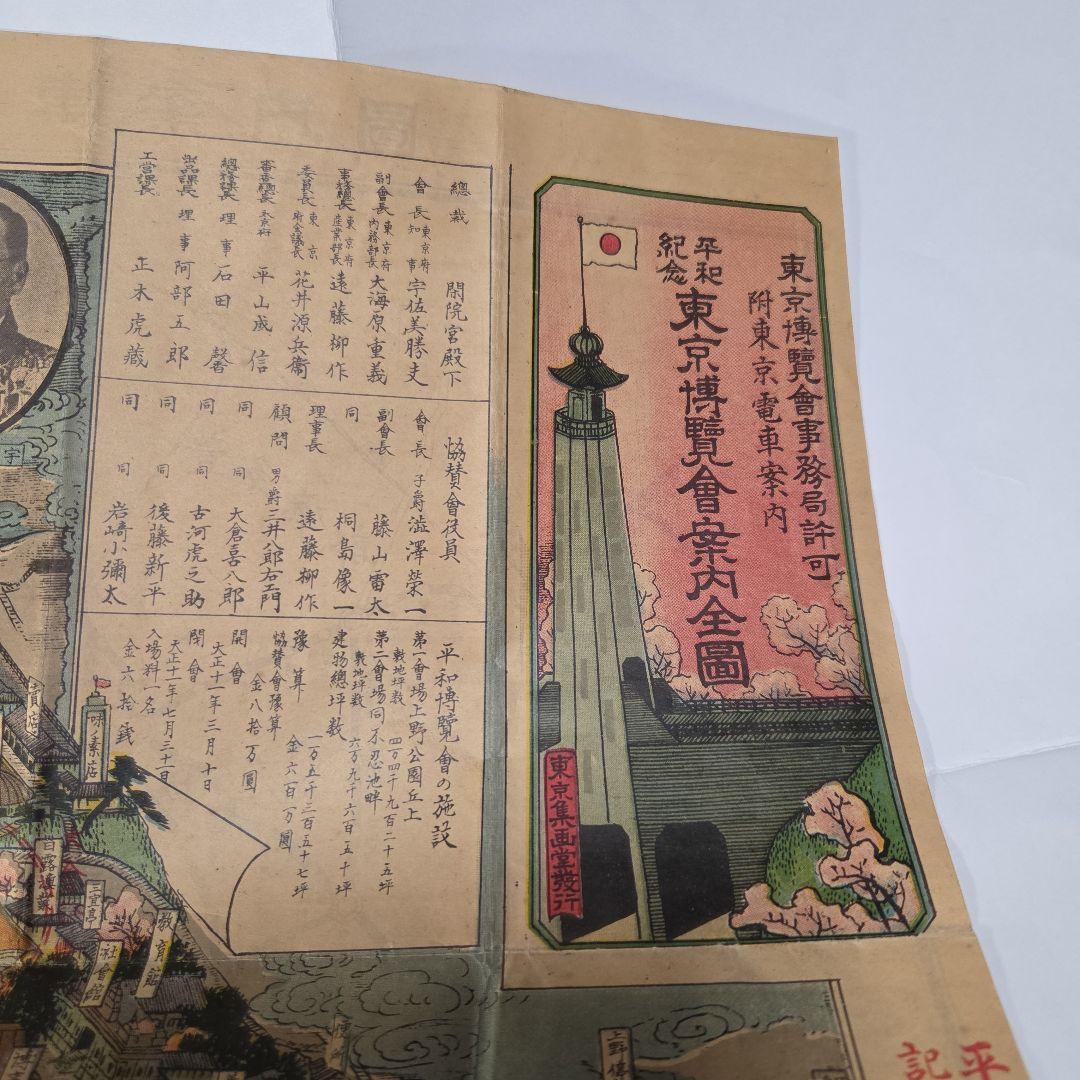 東京博覽會事務局許可
附東京電車案内
平和
紀念
東京博覽會案内全圖
東京集画堂發行
總裁 閑院宮殿下
會長 東京府知事 宇佐美勝夫
副會長 東京府内務部長 大海原重義
事務總長 東京府産業部長 遠藤柳作
委員長 東京府會議長 花井源兵衛
審査總長 平山成信
總務課長 理事 石田馨
出品課長 理事 阿部五郎
工営課長 正木虎藏
協賛會役員
會長 子爵 澁澤榮一
副會長 藤山雷太
同 桐島像一
理事長 遠藤柳作
顧問 男爵 三井八郎右衛門
同 同 大倉喜八郎
同 同 古河虎之助
同 同 後藤新平
同 同 岩崎小彌太
平和博覽會の施設
第一會場上野公園丘上
敷地坪数 四万四千九百二十五坪
第二會場同不忍池畔
敷地坪数 六万九千六百五十坪
建物總坪数
一万五千三百五十七坪
豫算 金六百万圓
協賛會豫算
金八拾万圓
開會
大正十一年三月十日
閉會
大正十一年七月三十一日
入場料一名
金六拾銭
賣店
味ノ素店
三宜亭
教育館
社會館
上野停
平
記
宇
圖